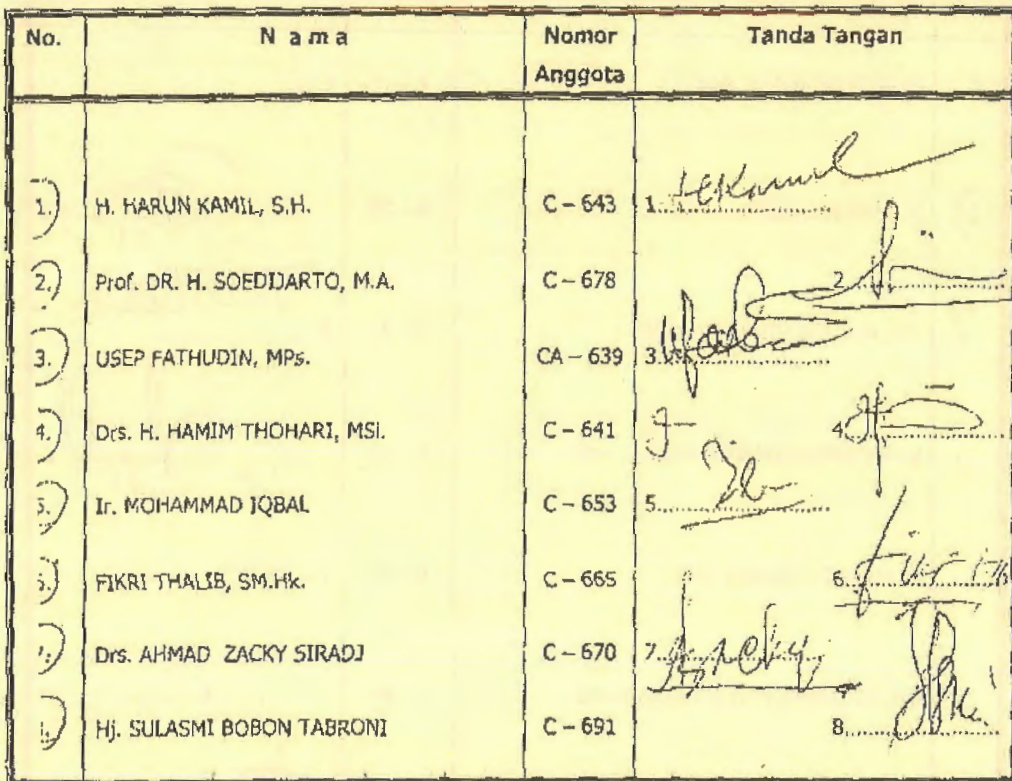 No. N a m a Nomor Anggota Tanda Tangan
1. H. HARUN KAMIL, S.H. C – 643 1. HKamil
2. Prof. DR. H. SOEDIJARTO, M.A. C – 678 2.
3. USEP FATHUDIN, MPs. CA – 639 3.
4. Drs. H. HAMIM THOHARI, MSi. C – 641 4.
5. Ir. MOHAMMAD IQBAL C – 653 5.
FIKRI THALIB, SM.Hk. C – 665 6.
Drs. AHMAD ZACKY SIRADJ C – 670 7.
Hj. SULASMI BOBON TABRONI C – 691 8.